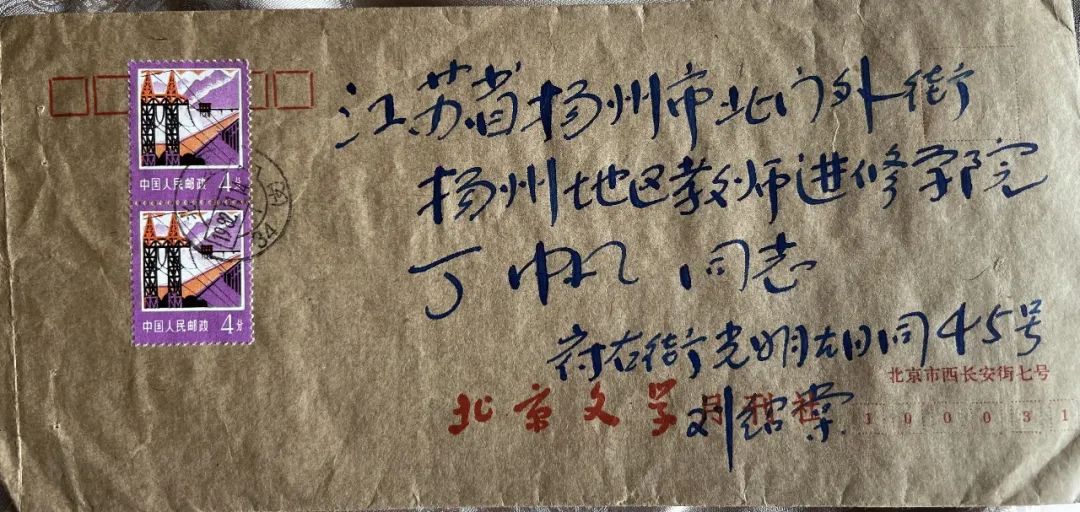 中国人民邮政 4分
中国人民邮政 4分
江苏省扬州市北门外街
扬州地区教师进修学院
丁帆 同志
府右街光明胡同45号
北京市西长安街七号
北京文学月刊社 100031
刘绍棠